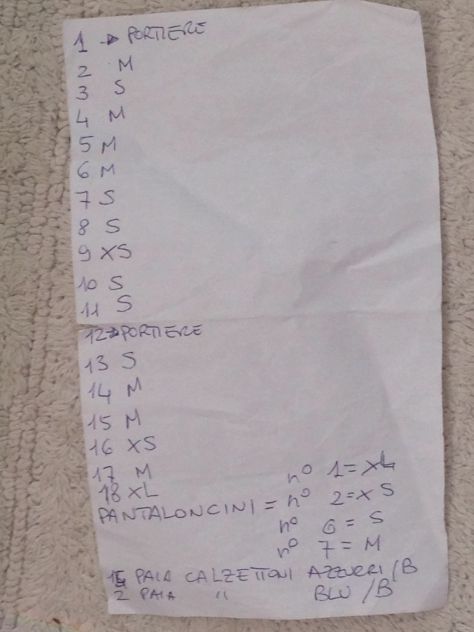 1 → PORTIERE
2 M
3 S
4 M
5 M
6 M
7 S
8 S
9 XS
10 S
11 S
12 → PORTIERE
13 S
14 M
15 M
16 XS
17 M
18 XL
PANTALONCINI = n° 1 = XL
n° 2 = XS
n° 6 = S
n° 7 = M
PAIA CALZETTONI AZZURRI /B
2 PAIA " BLU /B